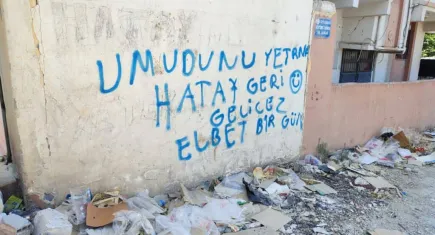 UMUDUNU YETRME
HATAY GERİ
GELİCEZ
ELBET BİR GÜN